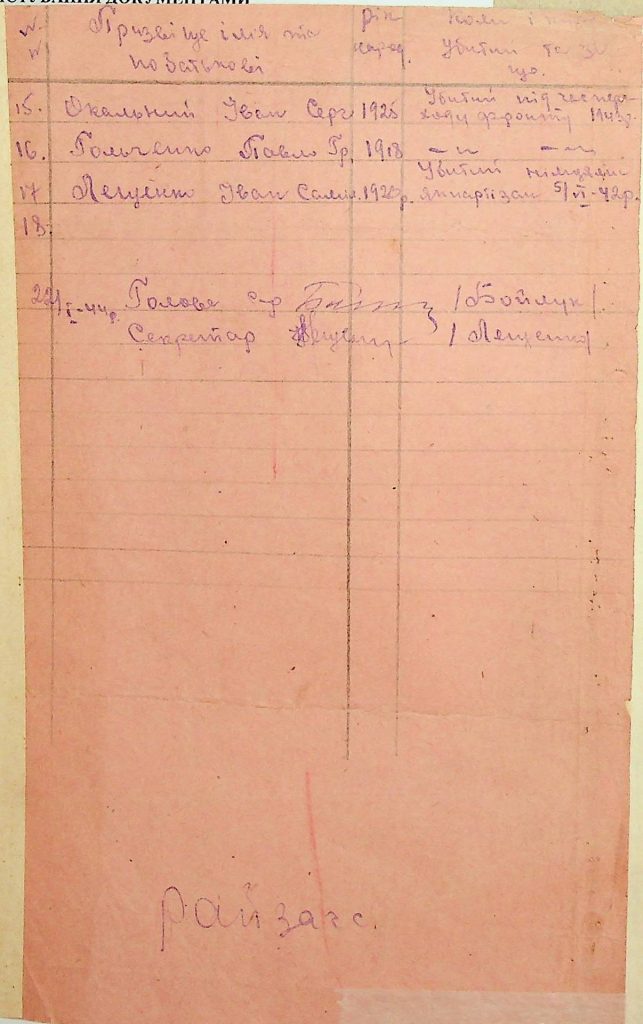 КОРИСТУВАННЯ ДОКУМЕНТАМИ
N. N Призвіще імія та по батькові
рік народ.
коли і ким убитий та за що.
15. Окальний Іван Серг 1925 Убитий під час пере-
ходу фронту 1943р.
16. Гольченко Павло Гр. 1918 — „ — — „ —
17 Лещенко Іван 1920р. Убитий німцями
як партізан 5/VI-42р.
18.
22/I-44р. Голова с-р /Бойлук/
Секретар /Лещенко/
Райзагс.